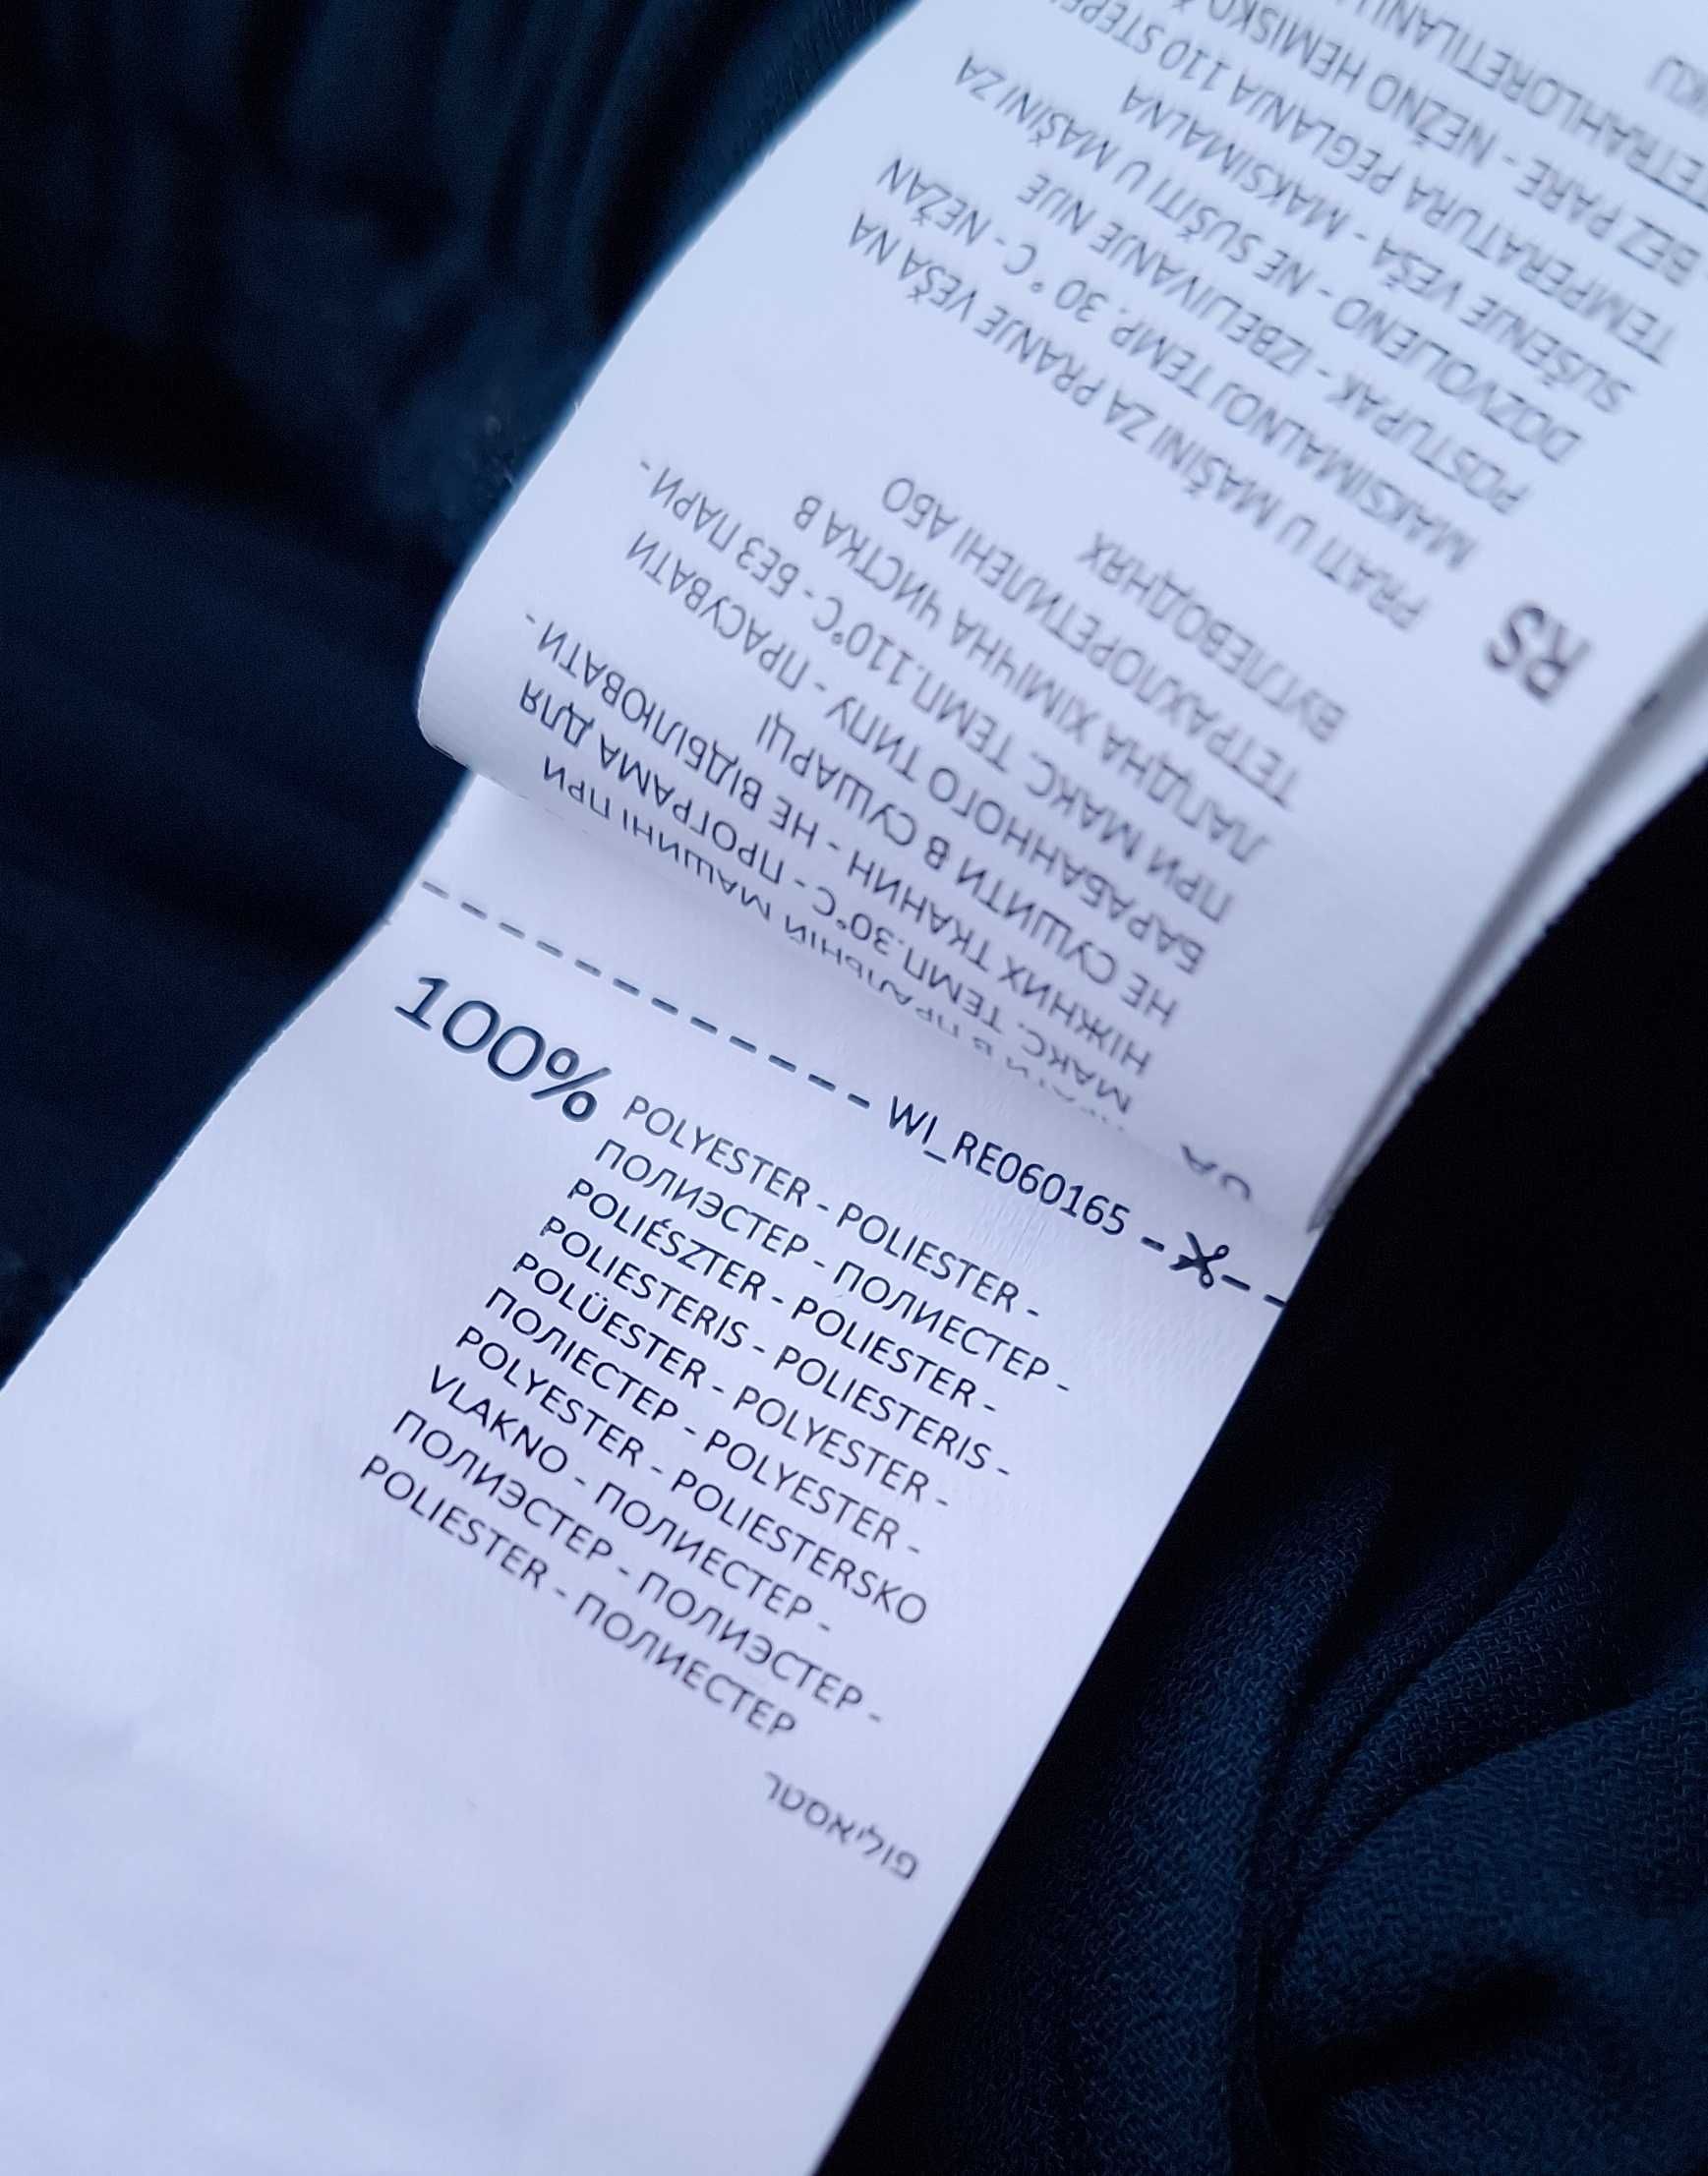 WI_RE060165
100%
POLYESTER - POLIESTER -
ПОЛИЭСТЕР - ПОЛИЕСТЕР -
POLIÉSZTER - POLIESTER -
POLIESTERIS - POLIESTERIS -
POLÜESTER - POLYESTER -
ПОЛІЕСТЕР - POLYESTER -
POLYESTER - POLIESTERSKO
VLAKNO - ПОЛИЕСТЕР -
ПОЛИЭСТЕР - ПОЛИЭСТЕР -
POLIESTER - ПОЛИЕСТЕР
פוליאסטר
UA
В ПРАЛЬНІЙ МАШИНІ ПРИ
МАКС. ТЕМП.30°C - ПРОГРАМА ДЛЯ
НІЖНИХ ТКАНИН - НЕ ВІДБІЛЮВАТИ -
НЕ СУШИТИ В СУШАРЦІ
БАРАБАННОГО ТИПУ - ПРАСУВАТИ
ПРИ МАКС. ТЕМП.110°C - БЕЗ ПАРИ -
ЛАГІДНА ХІМІЧНА ЧИСТКА В
ТЕТРАХЛОРЕТИЛЕНІ АБО
ВУГЛЕВОДНЯХ
RS
PRATI U MAŠINI ZA PRANJE VEŠA NA
MAKSIMALNOJ TEMP. 30 ° C - NEŽAN
POSTUPAK - IZBELJIVANJE NIJE
DOZVOLJENO - NE SUŠITI U MAŠINI ZA
SUŠENJE VEŠA - MAKSIMALNA
TEMPERATURA PEGLANJA 110
BEZ PARE - NEŽNO HEMISKO